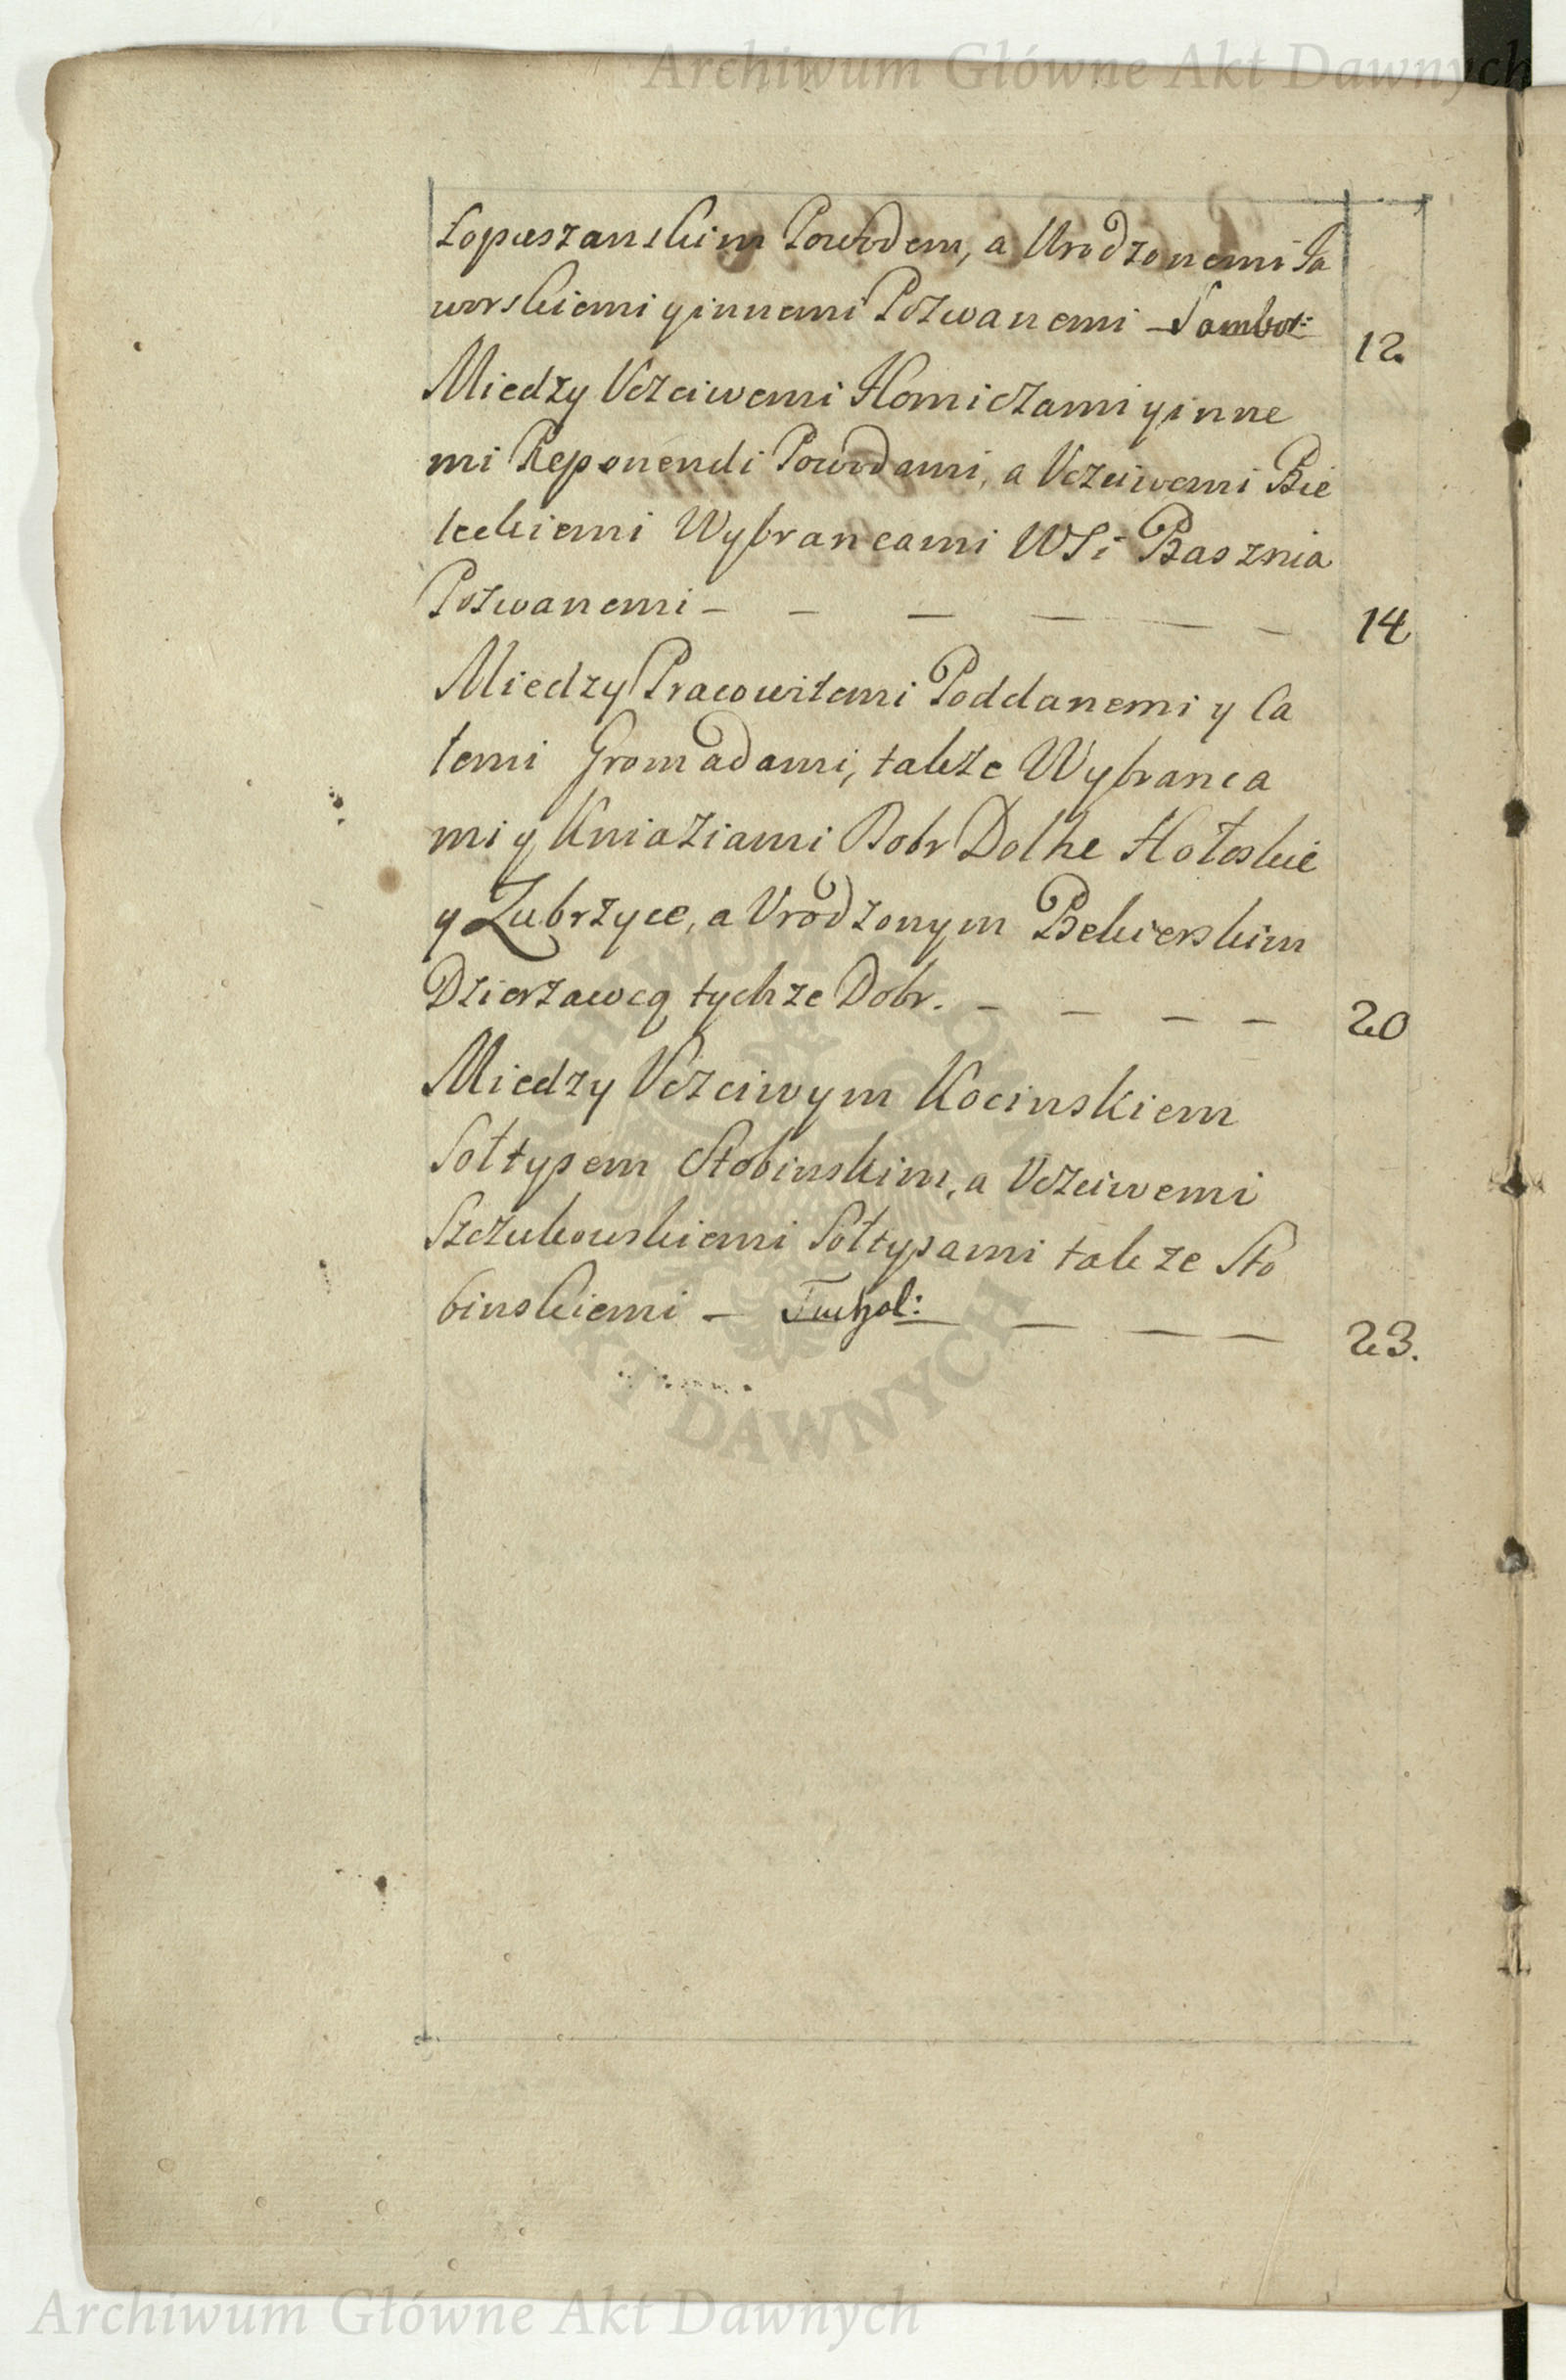 Archiwum Główne Akt Dawnych
Łopuszanskim Powodem, a Urodzonemi Ja
worskiemi y innemi Pozwanemi – Sambor: 12.
Miedzy Uczciwemi Homiczami y inne
mi Reponendi Powodami, a Uczciwemi Bie
leckiemi Wybrancami WSi Basznia
Pozwanemi – – – – – – 14
Miedzy Pracowitemi Poddanemi y Ca
łemi Gromadami, także Wybranca
mi y Kniaziami Dobr Dolhe Hołoskie
y Zubrzyce, a Urodzonym Bekierskim
Dzierzawcą tychze Dobr. – – – – 20
Miedzy Uczciwym Kocinskiem
Sołtysem Stobinskim, a Uczciwemi
Szczukowskiemi Sołtysami takze Sto
binskiemi – Tuchol: – – – 23.
ARCHIWUM GŁÓWNE AKT DAWNYCH
Archiwum Główne Akt Dawnych